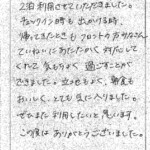 2泊利用させていただきました。
チェックイン時も出かける時、
帰ってきたときもフロントの方がみなさん
ていねいにあたたかく対応して
くれて気もちよく過ごすことが
できました。立地もよく、朝食も
おいしく、とても気に入りました。
ぜひまた利用したいと思います。
この度はありがとうございました。